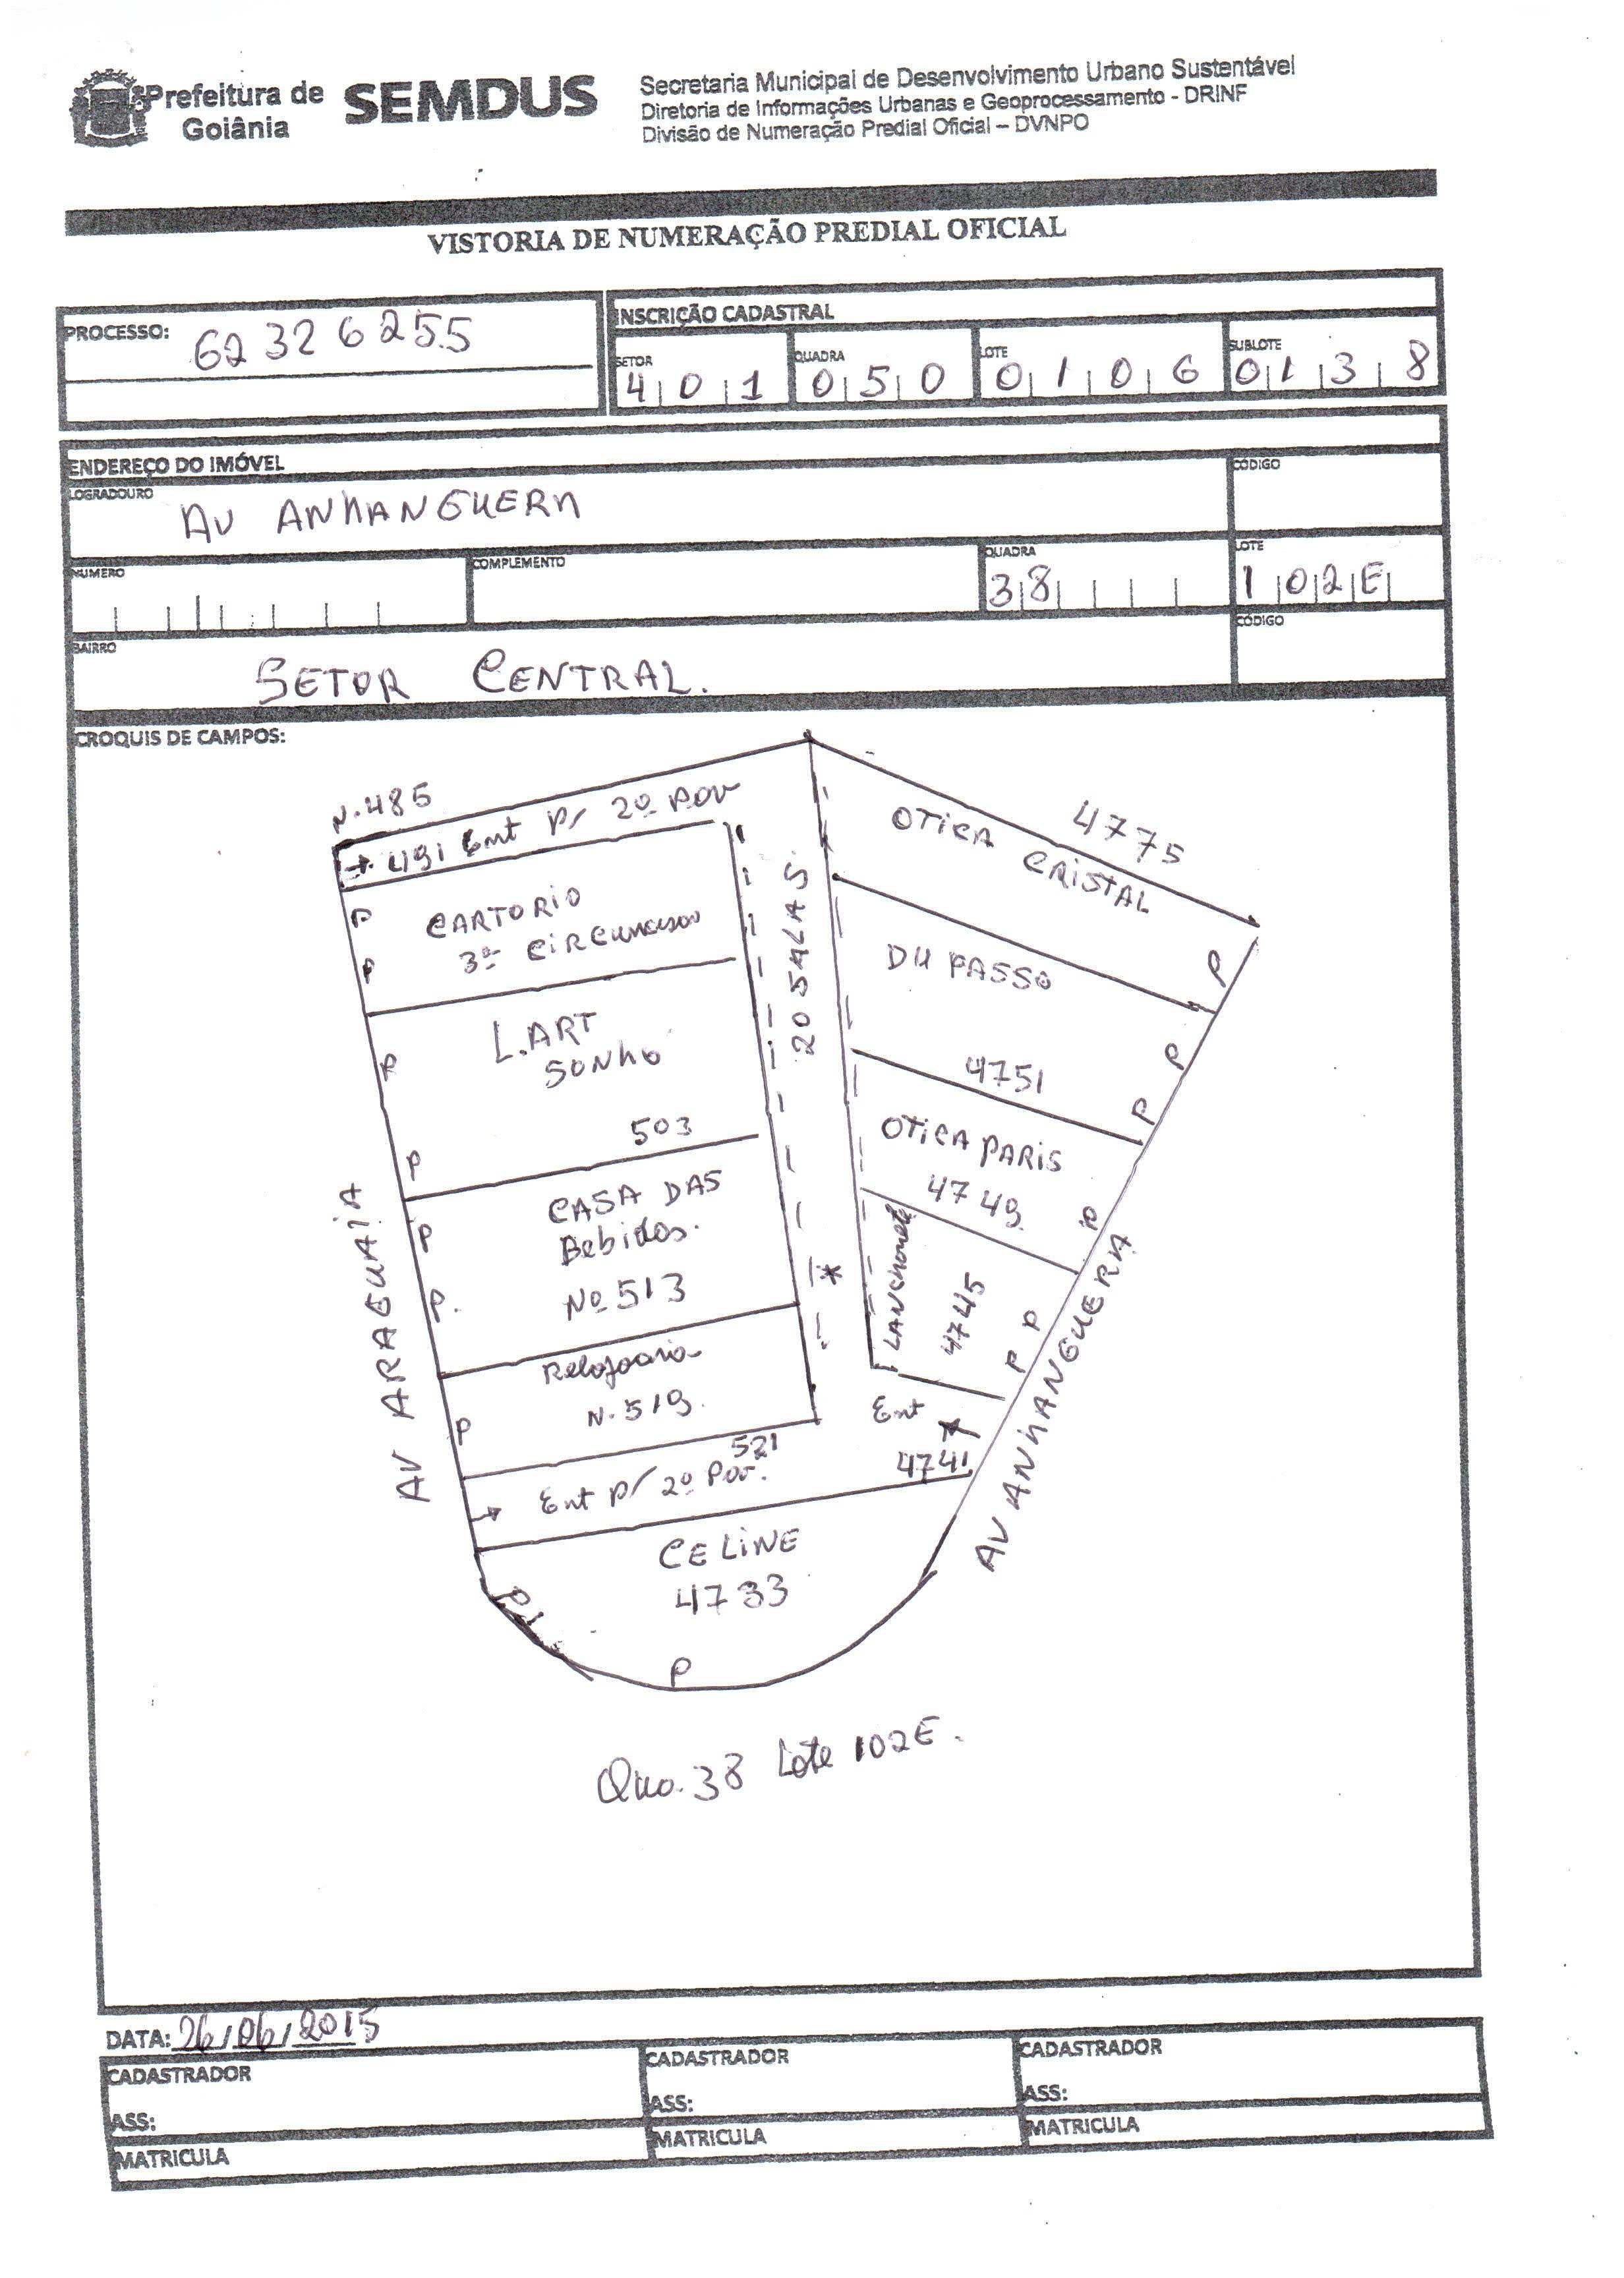 Prefeitura de
Goiânia
SEMDUS
Secretaria Municipal de Desenvolvimento Urbano Sustentável
Diretoria de Informações Urbanas e Geoprocessamento - DRINF
Divisão de Numeração Predial Oficial – DVNPO
VISTORIA DE NUMERAÇÃO PREDIAL OFICIAL
PROCESSO: 62326255
INSCRIÇÃO CADASTRAL
SETOR QUADRA LOTE SUBLOTE
401 050 0106 0138
ENDEREÇO DO IMÓVEL
LOGRADOURO CÓDIGO
AV ANHANGUERA
NUMERO COMPLEMENTO QUADRA LOTE
38 102E
BAIRRO CÓDIGO
SETOR CENTRAL.
CROQUIS DE CAMPOS:
N.485
491 Ent P/ 2º Pav
CARTORIO
3ª CIRCUNCISÃO
L.ART
SONHO
503
CASA DAS
Bebidas.
Nº 513
Relojoaria
N. 519.
521
Ent P/ 2º Pav.
CELINE
4733
P
P
P
P
P
P
P
P
P
AV ARAGUAIA
20 SALAS
*
4775
OTICA CRISTAL
DU PASSO
4751
OTICA PARIS
4749.
LANCHONETE
4745
Ent
4741.
P
P
P
P
P
P
AV ANHANGUERA
Qua. 38 Lote 102E.
DATA: 26/06/2015
CADASTRADOR CADASTRADOR CADASTRADOR
ASS: ASS: ASS:
MATRICULA MATRICULA MATRICULA